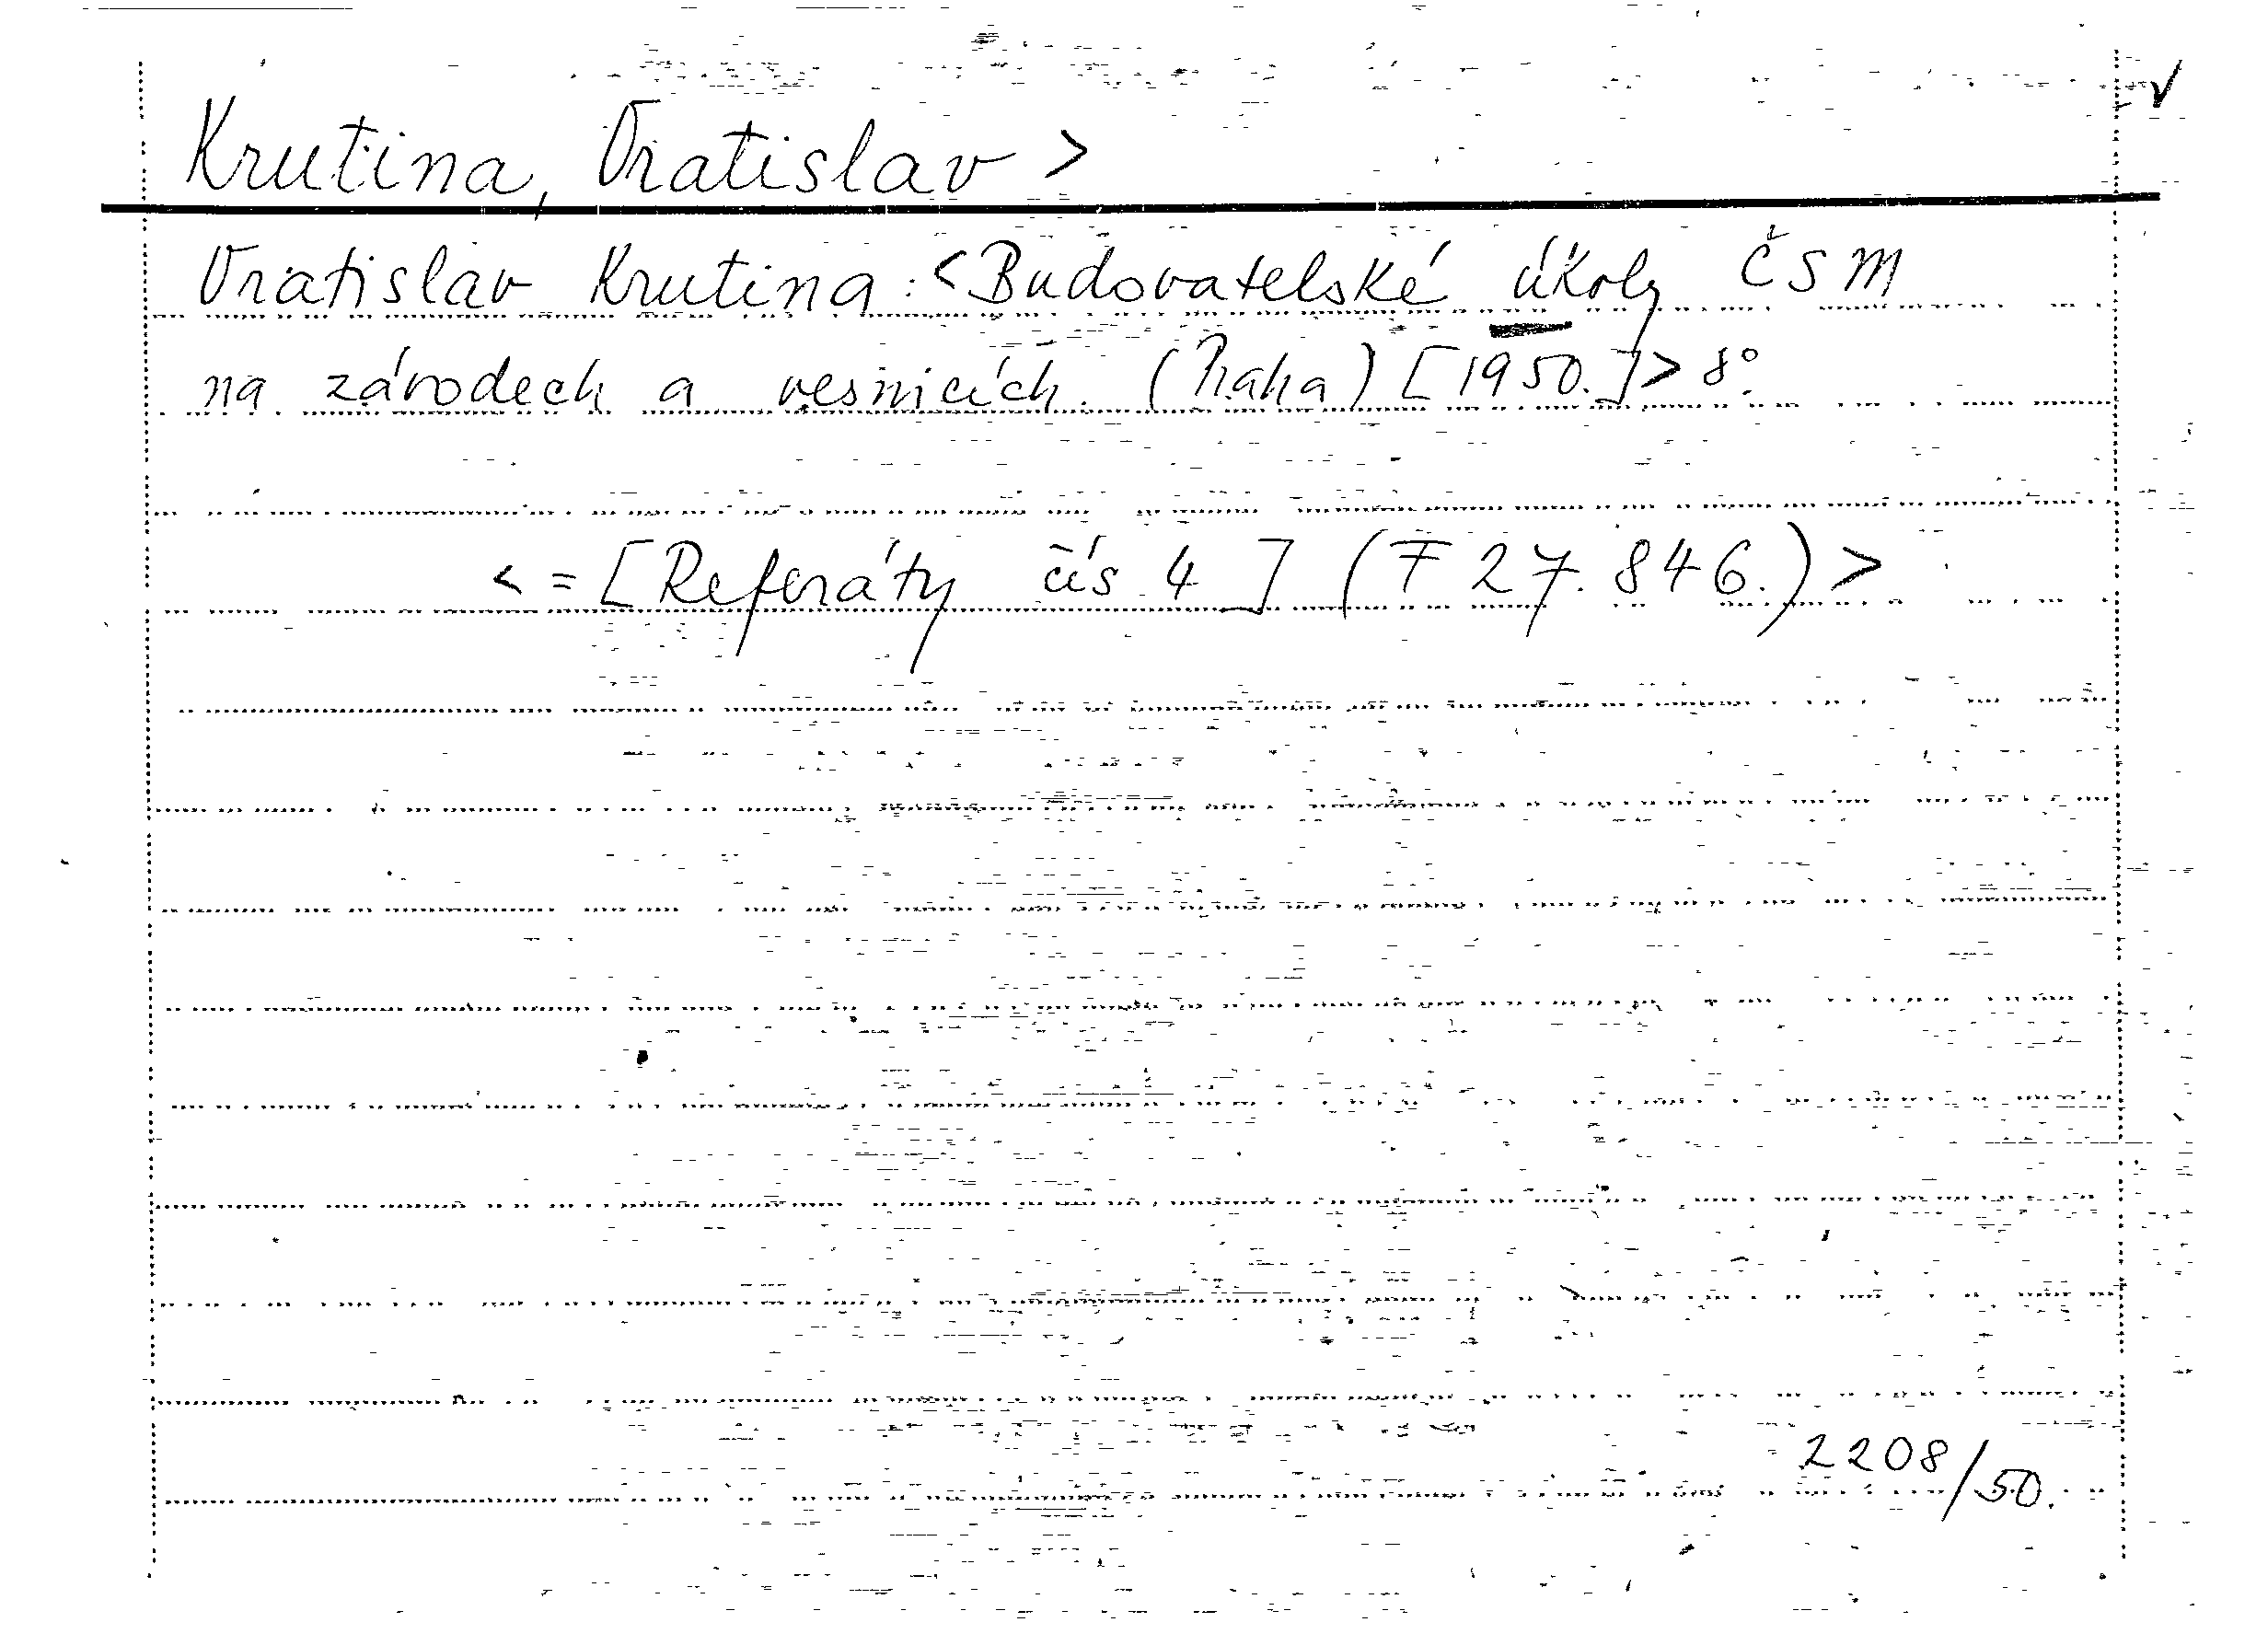 Krutina, Vratislav >
Vratislav Krutina: <Budovatelské úkoly ČSM
na závodech a vesnicích. (Praha) [1950.]> 8°.
<=[Referáty čís. 4] (F 27.846.)>
2208/50.